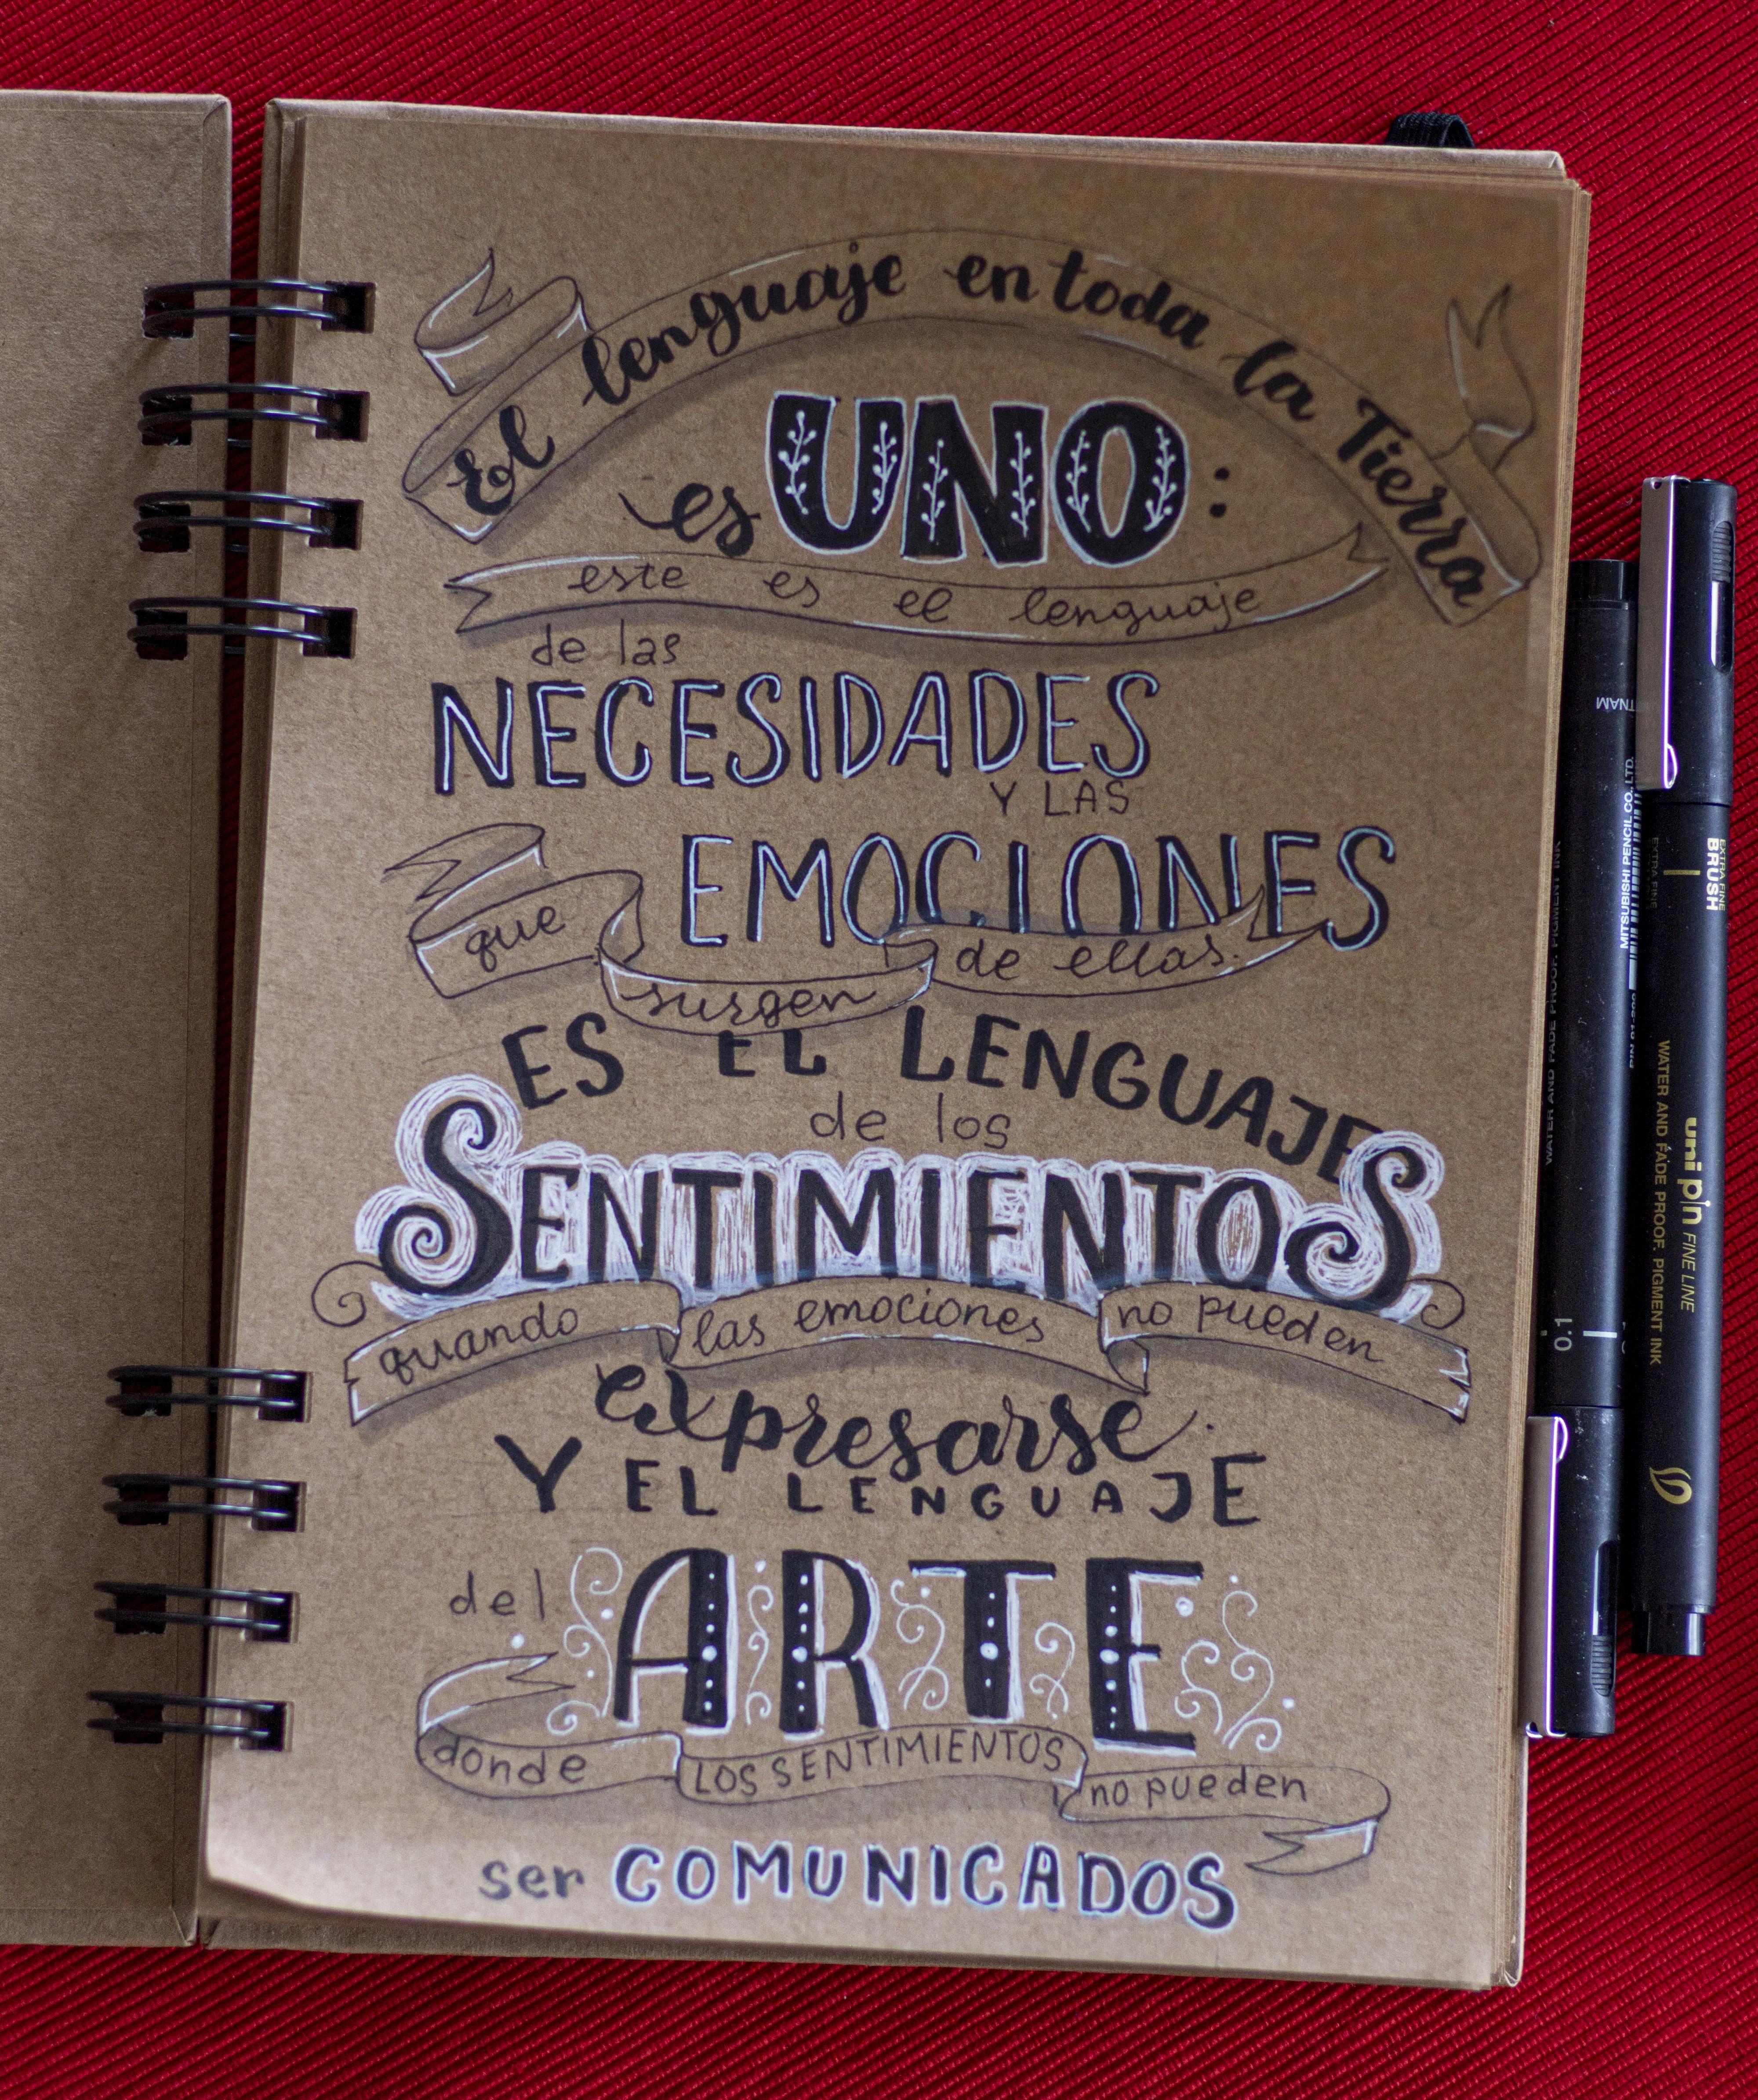 El lenguaje en toda la Tierra
es UNO:
este es el lenguaje
de las
NECESIDADES
Y LAS
EMOCIONES
que surgen de ellas.
ES EL LENGUAJE
de los
SENTIMIENTOS
quando las emociones no pueden
expresarse.
Y EL LENGUAJE
del ARTE
donde LOS SENTIMIENTOS no pueden
ser COMUNICADOS
EXTRA FINE
BRUSH
uni pin FINE LINE
WATER AND FADE PROOF, PIGMENT INK
MITSUBISHI PENCIL CO., LTD.
0.1